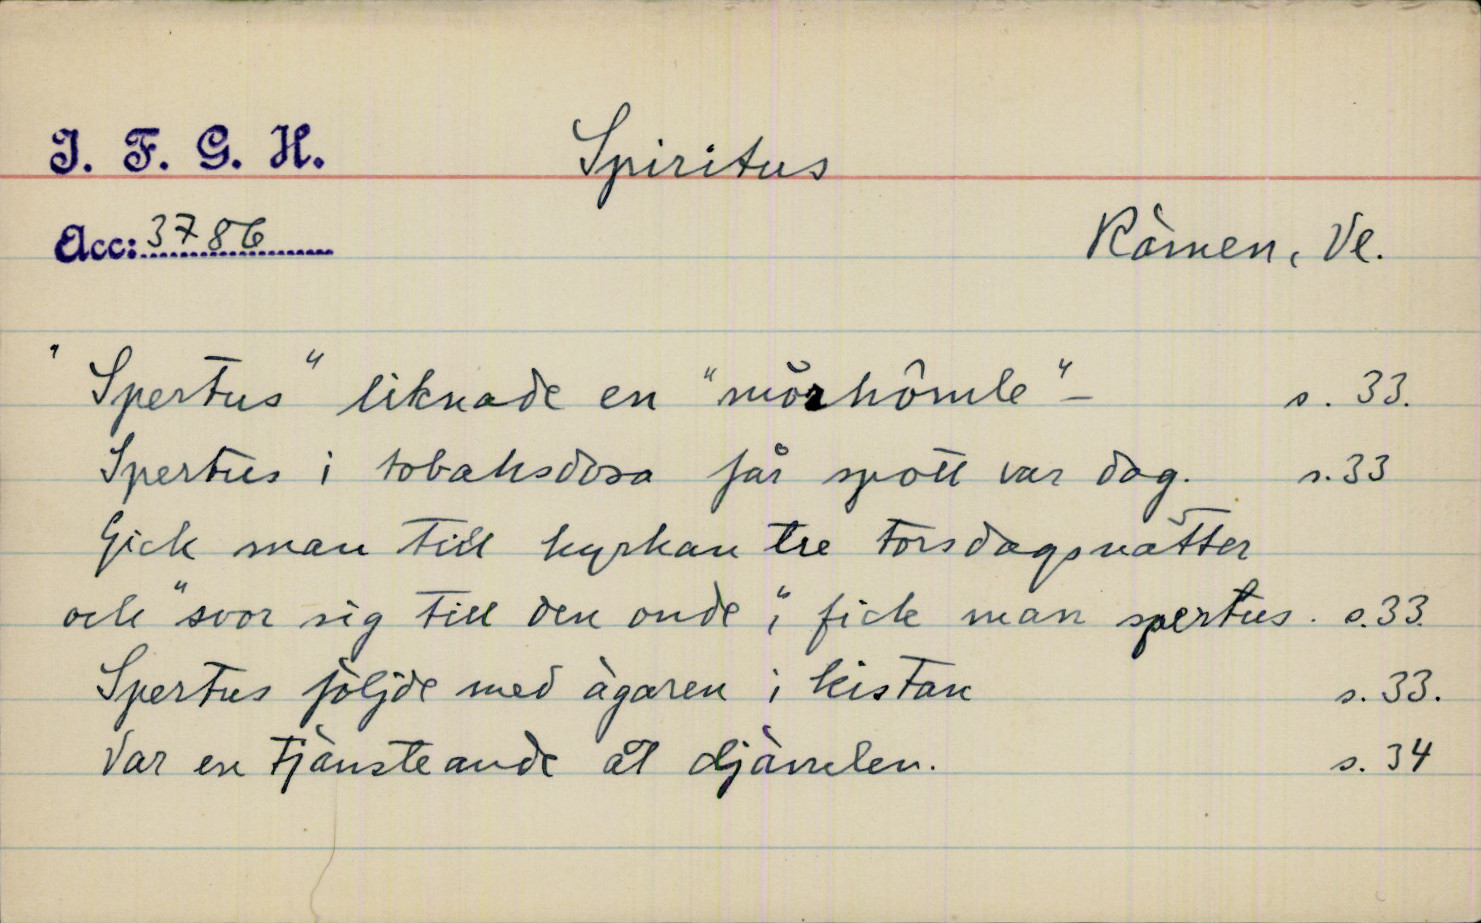 I. F. G. H.
Spiritus
Acc: 3786
Rämen, Vl.
"Spertus" liknade en "mörhômle" –  s. 33.
Spertus i tobaksdosa får spott var dag.  s. 33
Gick man till kyrkan tre torsdagsnätter
och "svor sig till den onde", fick man spertus.  s. 33.
Spertus följde med ägaren i kistan  s. 33.
Var en tjänsteande åt djävulen.  s. 34